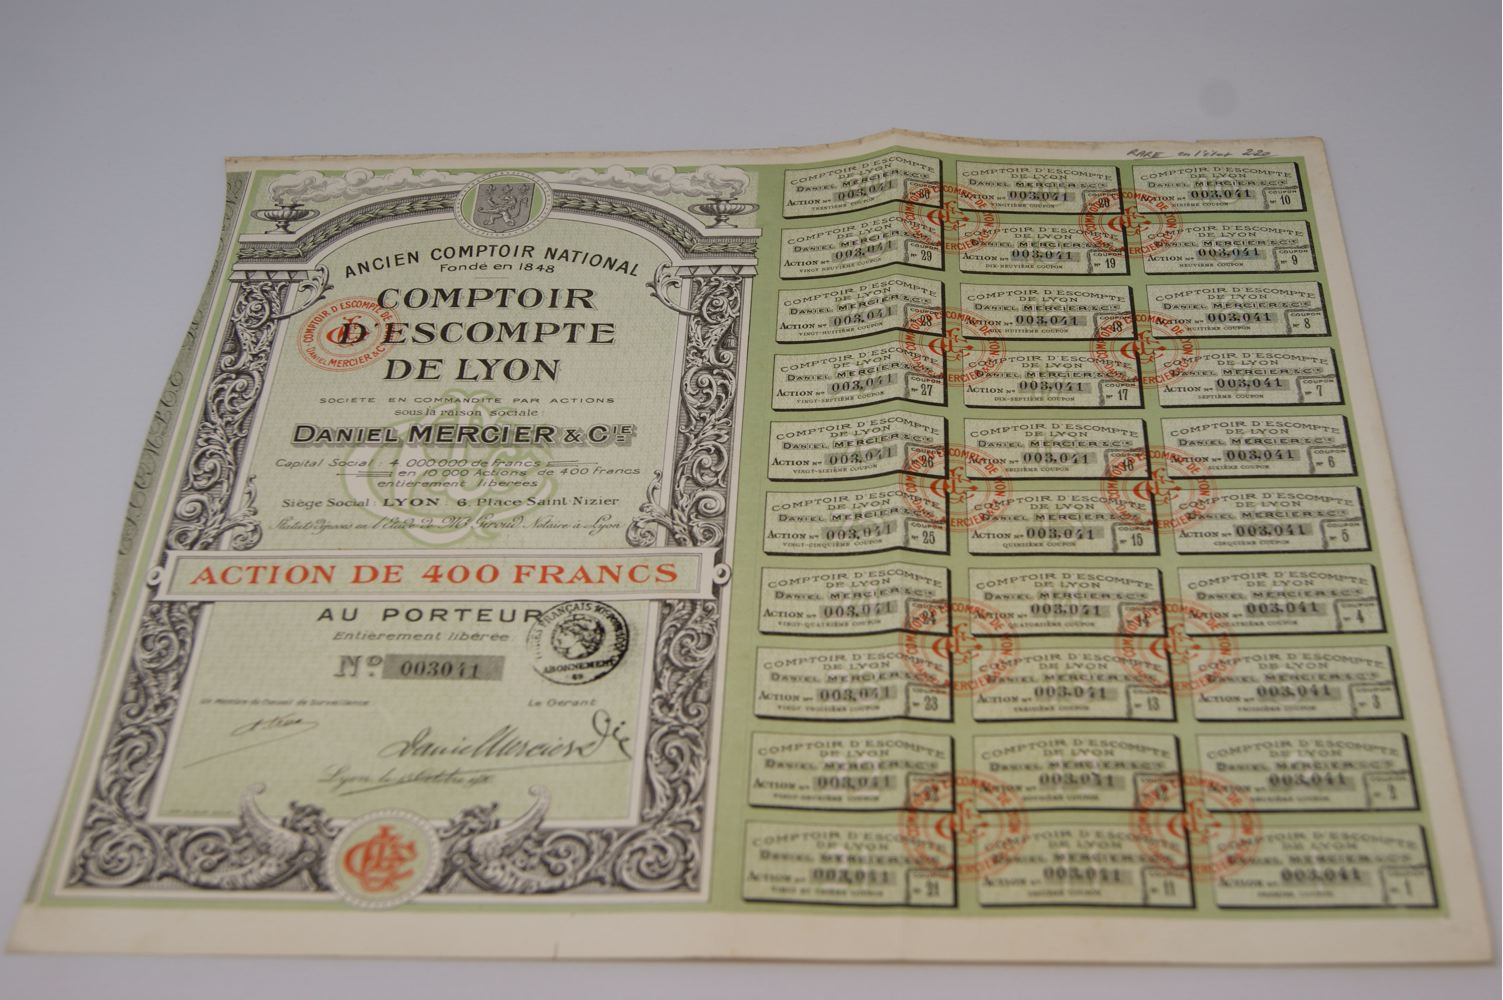 RARE en l'état 220
ANCIEN COMPTOIR NATIONAL
Fondé en 1848
COMPTOIR
D'ESCOMPTE
DE LYON
COMPTOIR D'ESCOMPTE DE
DANIEL MERCIER & CIE
SOCIÉTÉ EN COMMANDITE PAR ACTIONS
sous la raison sociale:
DANIEL MERCIER & CIE
Capital Social: 4.000.000 de Francs
en 10.000 Actions de 400 Francs
entièrement libérées
Siège Social: LYON - 6, Place Saint Nizier
Statuts déposés en l'Étude de Me Giroud, Notaire à Lyon
ACTION DE 400 FRANCS
AU PORTEUR
Entièrement libérée.
ABONNEMENT
No 003041
Un Membre du Conseil de Surveillance
Le Gérant
Daniel Mercier & Cie
COMPTOIR D'ESCOMPTE
DE LYON
DANIEL MERCIER & CIE
ACTION No 003,041 COUPON No 30
TRENTIÈME COUPON
COMPTOIR D'ESCOMPTE
DE LYON
DANIEL MERCIER & CIE
ACTION No 003,041 COUPON No 20
VINGTIÈME COUPON
COMPTOIR D'ESCOMPTE
DE LYON
DANIEL MERCIER & CIE
ACTION No 003,041 COUPON No 10
DIXIÈME COUPON
COMPTOIR D'ESCOMPTE
DE LYON
DANIEL MERCIER & CIE
ACTION No 003,041 COUPON No 29
VINGT-NEUVIÈME COUPON
COMPTOIR D'ESCOMPTE
DE LYON
DANIEL MERCIER & CIE
ACTION No 003,041 COUPON No 19
DIX-NEUVIÈME COUPON
COMPTOIR D'ESCOMPTE
DE LYON
DANIEL MERCIER & CIE
ACTION No 003,041 COUPON No 9
NEUVIÈME COUPON
COMPTOIR D'ESCOMPTE
DE LYON
DANIEL MERCIER & CIE
ACTION No 003,041 COUPON No 28
VINGT-HUITIÈME COUPON
COMPTOIR D'ESCOMPTE
DE LYON
DANIEL MERCIER & CIE
ACTION No 003,041 COUPON No 18
DIX-HUITIÈME COUPON
COMPTOIR D'ESCOMPTE
DE LYON
DANIEL MERCIER & CIE
ACTION No 003,041 COUPON No 8
HUITIÈME COUPON
COMPTOIR D'ESCOMPTE
DE LYON
DANIEL MERCIER & CIE
ACTION No 003,041 COUPON No 27
VINGT-SEPTIÈME COUPON
COMPTOIR D'ESCOMPTE
DE LYON
DANIEL MERCIER & CIE
ACTION No 003,041 COUPON No 17
DIX-SEPTIÈME COUPON
COMPTOIR D'ESCOMPTE
DE LYON
DANIEL MERCIER & CIE
ACTION No 003,041 COUPON No 7
SEPTIÈME COUPON
COMPTOIR D'ESCOMPTE
DE LYON
DANIEL MERCIER & CIE
ACTION No 003,041 COUPON No 26
VINGT-SIXIÈME COUPON
COMPTOIR D'ESCOMPTE
DE LYON
DANIEL MERCIER & CIE
ACTION No 003,041 COUPON No 16
SEIZIÈME COUPON
COMPTOIR D'ESCOMPTE
DE LYON
DANIEL MERCIER & CIE
ACTION No 003,041 COUPON No 6
SIXIÈME COUPON
COMPTOIR D'ESCOMPTE
DE LYON
DANIEL MERCIER & CIE
ACTION No 003,041 COUPON No 25
VINGT-CINQUIÈME COUPON
COMPTOIR D'ESCOMPTE
DE LYON
DANIEL MERCIER & CIE
ACTION No 003,041 COUPON No 15
QUINZIÈME COUPON
COMPTOIR D'ESCOMPTE
DE LYON
DANIEL MERCIER & CIE
ACTION No 003,041 COUPON No 5
CINQUIÈME COUPON
COMPTOIR D'ESCOMPTE
DE LYON
DANIEL MERCIER & CIE
ACTION No 003,041 COUPON No 24
VINGT-QUATRIÈME COUPON
COMPTOIR D'ESCOMPTE
DE LYON
DANIEL MERCIER & CIE
ACTION No 003,041 COUPON No 14
QUATORZIÈME COUPON
COMPTOIR D'ESCOMPTE
DE LYON
DANIEL MERCIER & CIE
ACTION No 003,041 COUPON No 4
QUATRIÈME COUPON
COMPTOIR D'ESCOMPTE
DE LYON
DANIEL MERCIER & CIE
ACTION No 003,041 COUPON No 23
VINGT-TROISIÈME COUPON
COMPTOIR D'ESCOMPTE
DE LYON
DANIEL MERCIER & CIE
ACTION No 003,041 COUPON No 13
TREIZIÈME COUPON
COMPTOIR D'ESCOMPTE
DE LYON
DANIEL MERCIER & CIE
ACTION No 003,041 COUPON No 3
TROISIÈME COUPON
COMPTOIR D'ESCOMPTE
DE LYON
DANIEL MERCIER & CIE
ACTION No 003,041 COUPON No 22
VINGT-DEUXIÈME COUPON
COMPTOIR D'ESCOMPTE
DE LYON
DANIEL MERCIER & CIE
ACTION No 003,041 COUPON No 12
DOUZIÈME COUPON
COMPTOIR D'ESCOMPTE
DE LYON
DANIEL MERCIER & CIE
ACTION No 003,041 COUPON No 2
DEUXIÈME COUPON
COMPTOIR D'ESCOMPTE
DE LYON
DANIEL MERCIER & CIE
ACTION No 003,041 COUPON No 21
VINGT ET UNIÈME COUPON
COMPTOIR D'ESCOMPTE
DE LYON
DANIEL MERCIER & CIE
ACTION No 003,041 COUPON No 11
ONZIÈME COUPON
COMPTOIR D'ESCOMPTE
DE LYON
DANIEL MERCIER & CIE
ACTION No 003,041 COUPON No 1
PREMIER COUPON